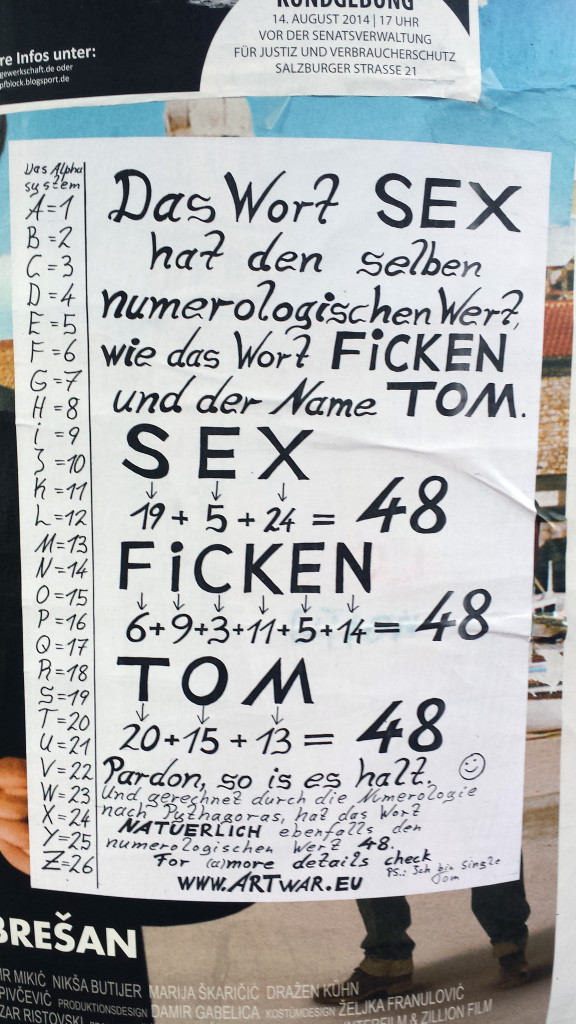 KUNDGEBUNG
14. AUGUST 2014 | 17 UHR
VOR DER SENATSVERWALTUNG
FÜR JUSTIZ UND VERBRAUCHERSCHUTZ
SALZBURGER STRASSE 21
re Infos unter:
gewerkschaft.de oder
pfblock.blogsport.de
Das Alpha
system
A=1
B=2
C=3
D=4
E=5
F=6
G=7
H=8
i=9
J=10
K=11
L=12
M=13
N=14
O=15
P=16
Q=17
R=18
S=19
T=20
U=21
V=22
W=23
X=24
Y=25
Z=26
Das Wort SEX
hat den selben
numerologischen Wert,
wie das Wort FiCKEN
und der Name TOM.
SEX
↓ ↓ ↓
19 + 5 + 24 = 48
FiCKEN
↓ ↓ ↓ ↓ ↓ ↓
6+9+3+11+5+14= 48
TOM
↓ ↓ ↓
20+15+13 = 48
Pardon, so is es halt. ☺
Und gerechnet durch die Numerologie
nach Pythagoras, hat das Wort
NATUERLICH ebenfalls den
numerologischen Wert 48.
For (a)more details check
www.ARTwar.EU
PS.: Ich bin Single
Tom
BREŠAN
IR MIKIĆ NIKŠA BUTIJER MARIJA ŠKARIČIĆ DRAŽEN KÜHN
PIVČEVIĆ PRODUKTIONSDESIGN DAMIR GABELICA KOSTÜMDESIGN ŽELJKA FRANULOVIĆ
ZAR RISTOVSKI INTERFILM & ZILLION FILM